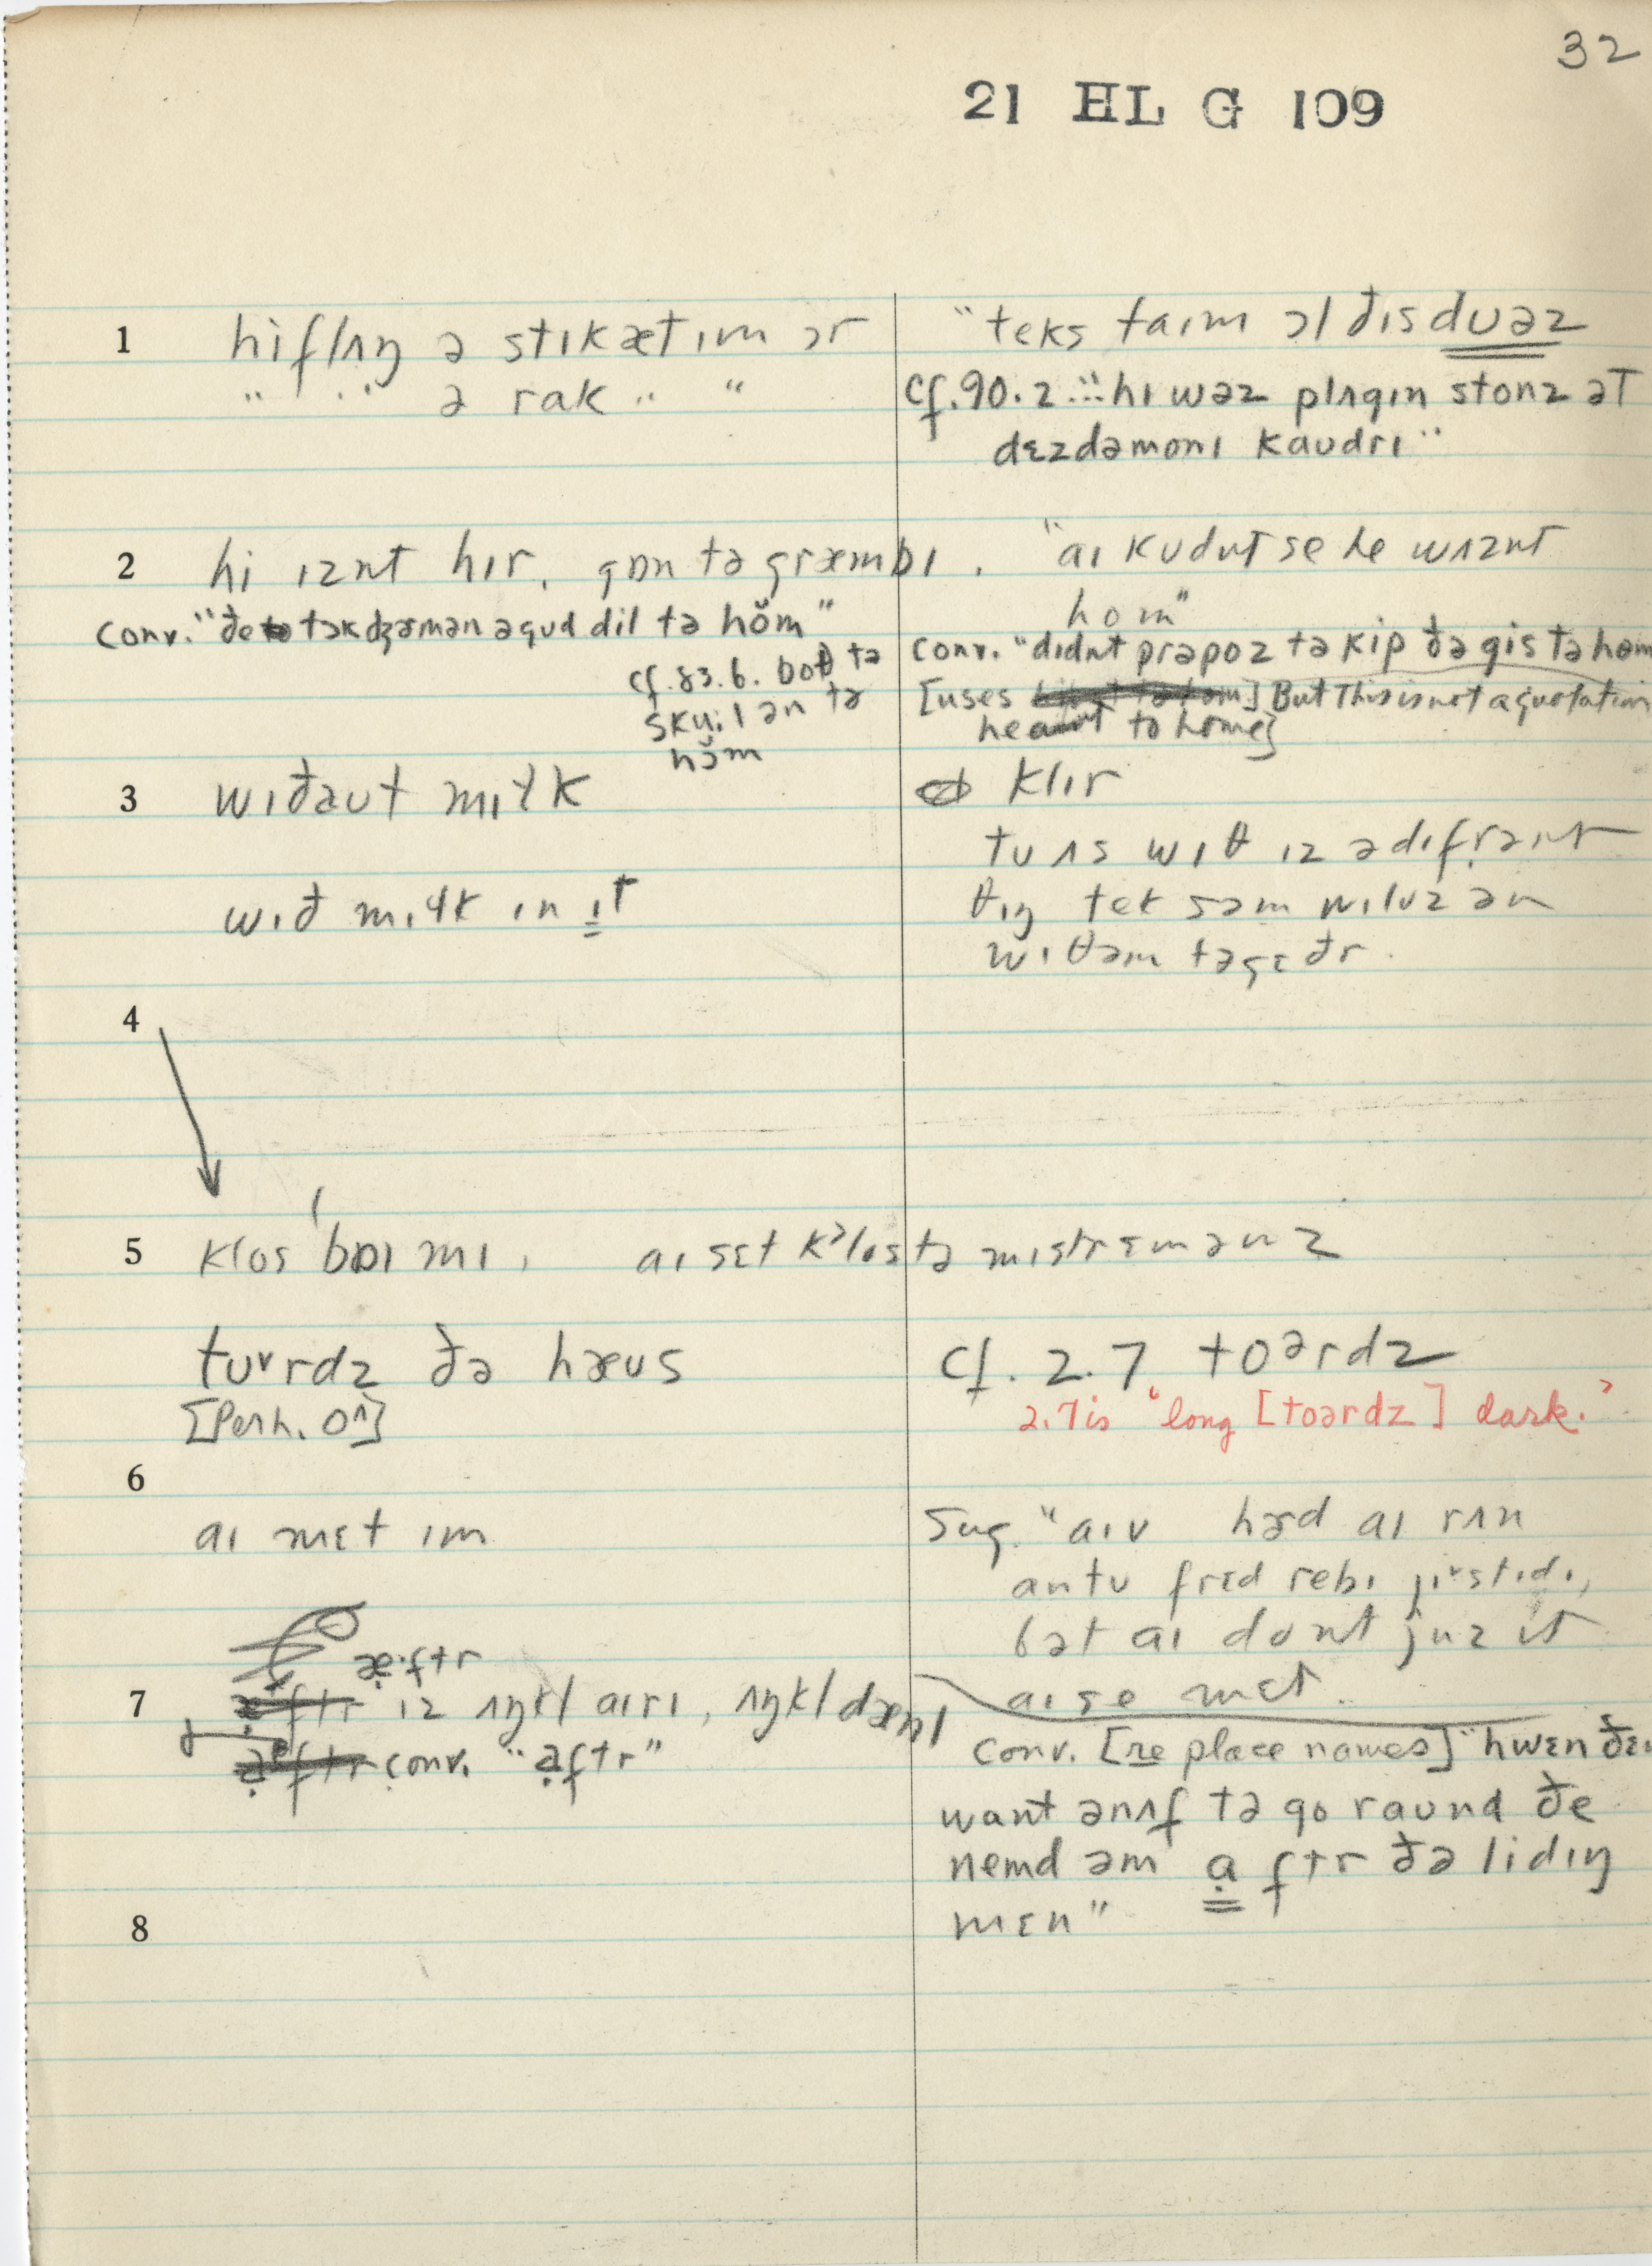 32
21 HL G 109
1 hiflʌŋ ə stɪk ætɪm ɔr
" " ə rak " "
"teks taɪm ɔl ðɪs duəz
cf. 90.2 "hɪ wəz plʌgɪn stonz əT
dɛzdəmonɪ kaudrɪ"
2 hi ɪznt hɪr, gɒn tə græmbɪ.
conv. "ðe tɔk dʒɜmən əgud dil tə hŏm"
cf. 83.6. boθ tə
skuːl ən tə
hŏm
"aɪ kudnt se he wʌznt
hom"
conv. "dɪdnt prəpoz tə kip ðə gis tə hom
[uses] But this is not a quotation
to home]
3 wɪðəut mɪɫk
wɪð mɪɫk ɪn ɪt
klɪr
tu ʌs wɪθ ɪz ə dɪfrənt
θɪŋ tek səm wɪluz ən
wɪθəm təgɛðr.
4
5 klos baɪ mɪ, aɪ sɛt kᵊlos tə mɪstr ɛmənz
tuᵛrdz ðə hæus
[Perh. o^]
cf. 2.7 toᵊrdz
2.7 is "long [toərdz] dark."
6
aɪ mɛt ɪm
Sug. "aɪv hɜd aɪ rʌn
antu frɛd rebɪ jɪstɪdɪ,
bət aɪ dont juz ɪt
aɪ se mɛt.
æ·ftr
7 ɪz ʌŋkl aɪrɪ, ʌŋkl dænl
conv. "aftr"
conv. [re place names] "hwɛn ðe
want ənʌf tə go raund ðe
nemd əm aftr ðə lidɪŋ
mɛn"
8